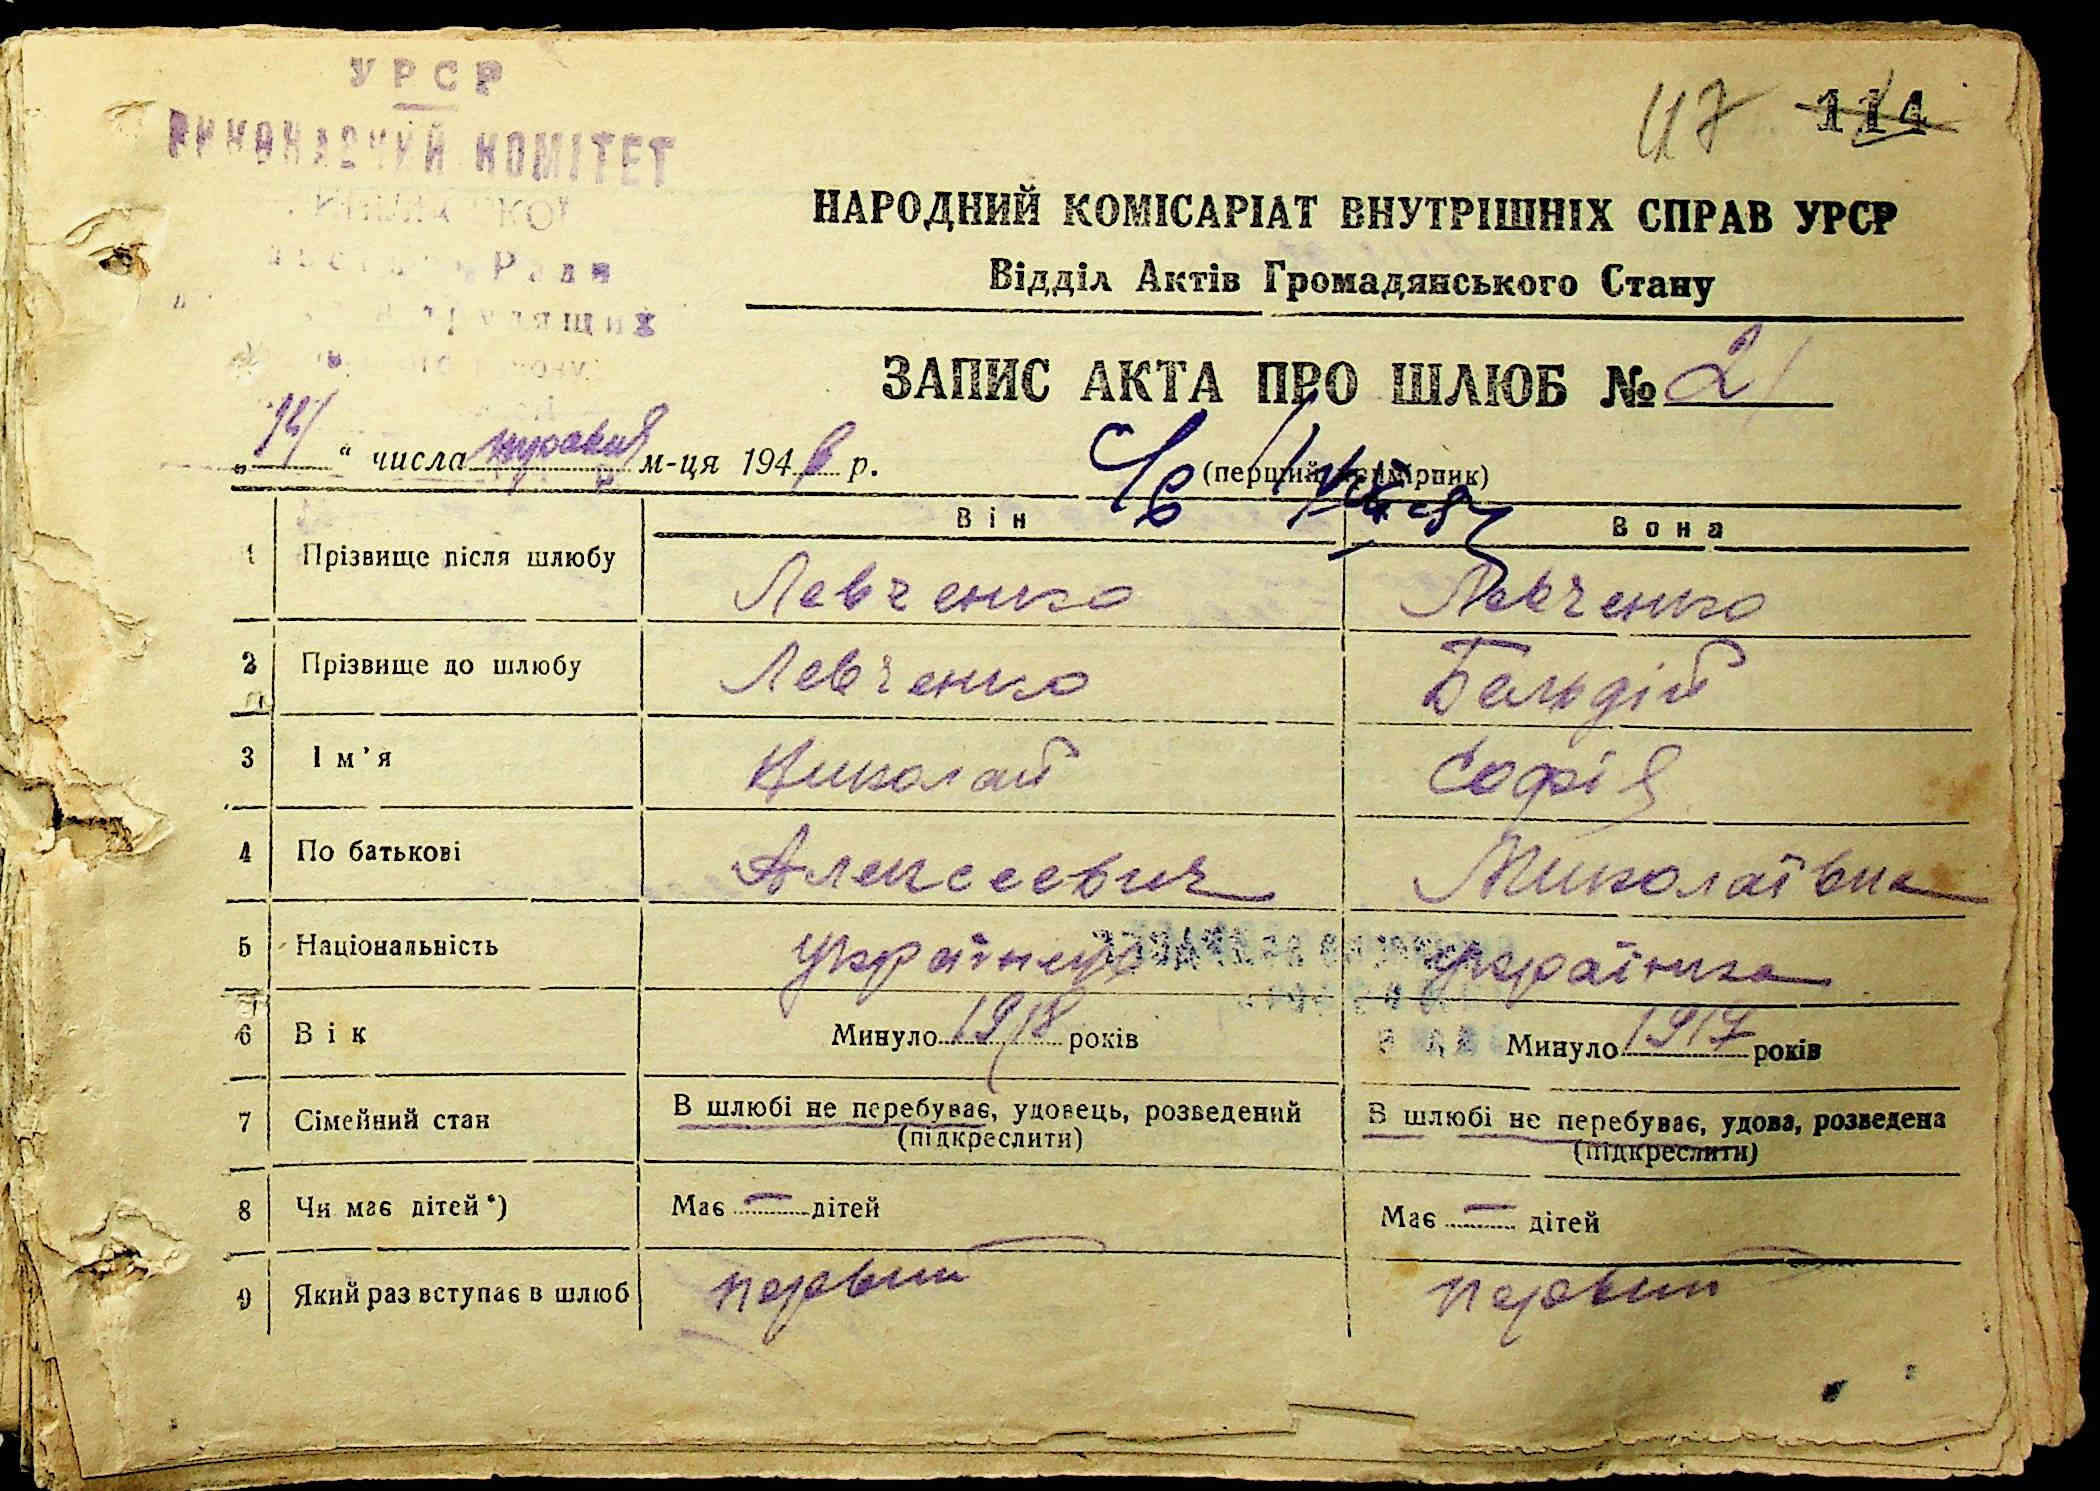 УРСР
ВИКОНАВЧИЙ КОМІТЕТ
Ради
трудящих
117 114
НАРОДНИЙ КОМІСАРІАТ ВНУТРІШНІХ СПРАВ УРСР
Відділ Актів Громадянського Стану
ЗАПИС АКТА ПРО ШЛЮБ № 21
„14“ числа травня м-ця 1946 р.
(перший примірник)
Він Вона
1 Прізвище після шлюбу Левченко Левченко
2 Прізвище до шлюбу Левченко Бельдій
3 Ім'я Николай Софія
4 По батькові Алексеевич Миколаївна
5 Національність українець українка
6 Вік Минуло 1918 років Минуло 1917 років
7 Сімейний стан В шлюбі не перебуває, удовець, розведений В шлюбі не перебуває, удова, розведена
(підкреслити) (підкреслити)
8 Чи має дітей*) Має — дітей Має — дітей
9 Який раз вступає в шлюб первый первый